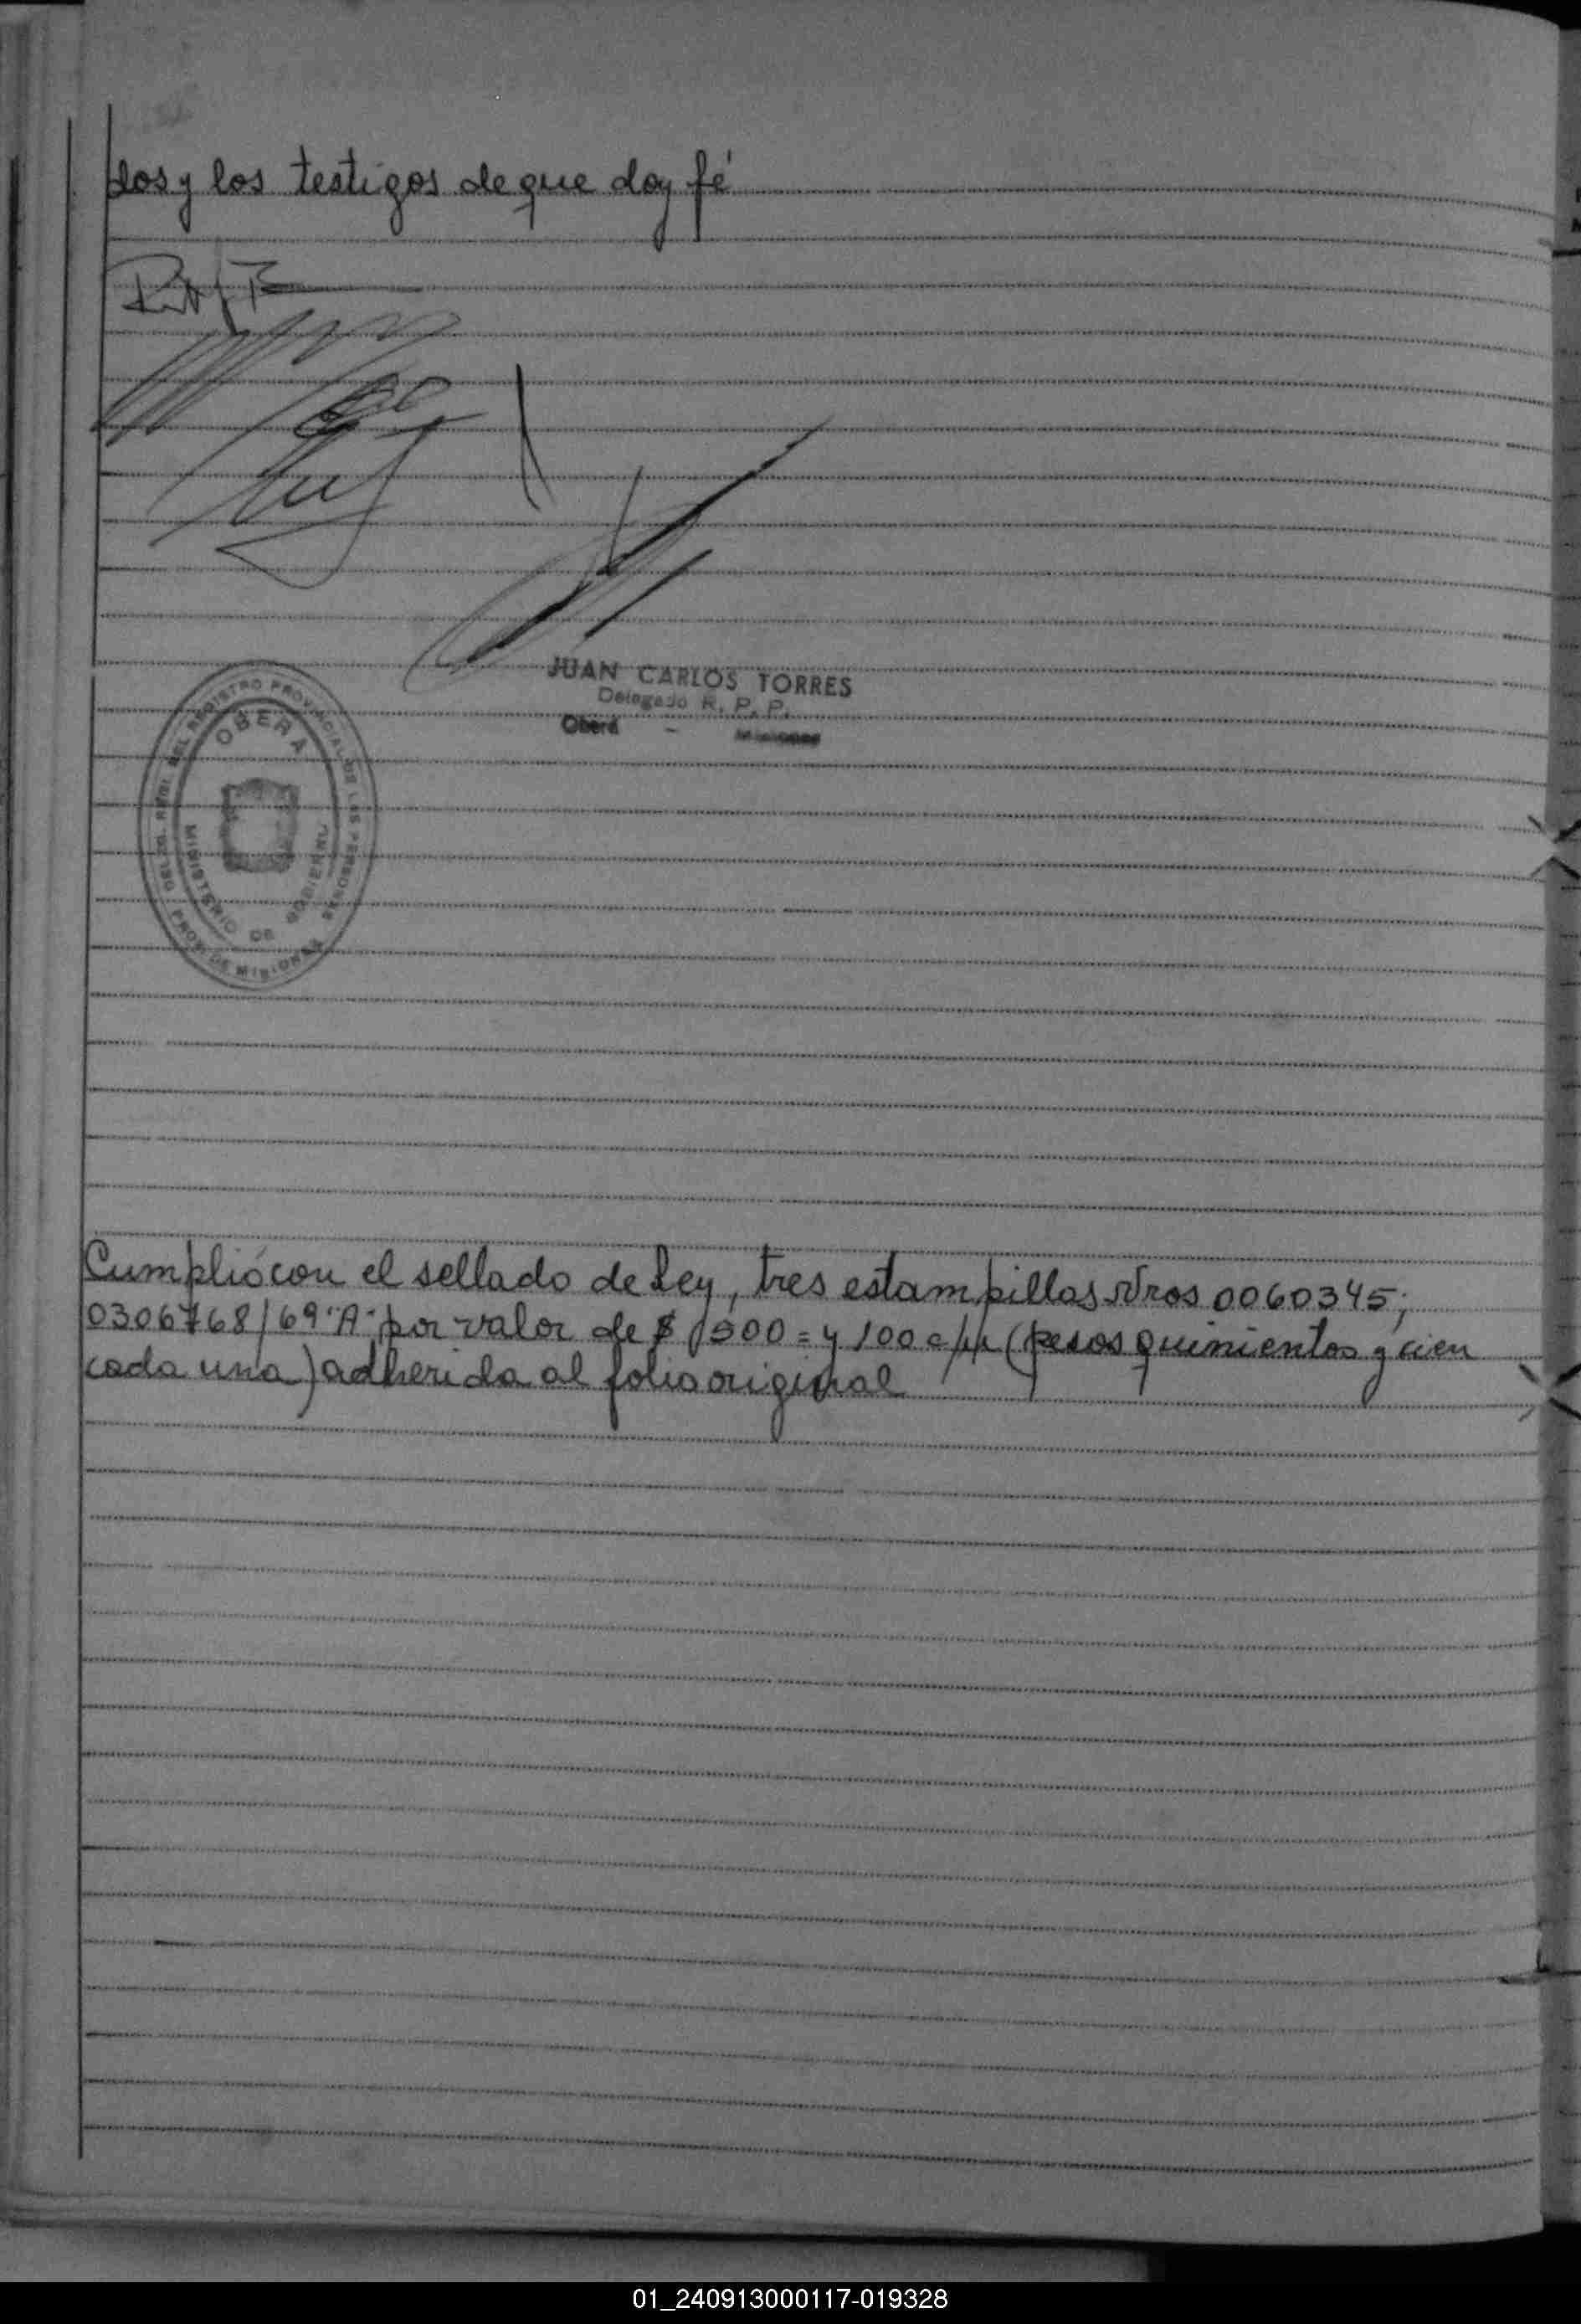 dos y los testigos de que doy fé
JUAN CARLOS TORRES
Delegado R. P. P.
Oberá - Misiones
DEL REGISTRO PROVINCIAL DE LAS PERSONAS
OBERA
MINISTERIO DE GOBIERNO
PROV. DE MISIONES
Cumplió con el sellado de Ley, tres estampillas Nros 0060345;
0306768/69 "A" por valor de $ 500 = y 100 c/u (pesos quinientos y cien
cada una) adherida al folio original
01_240913000117-019328